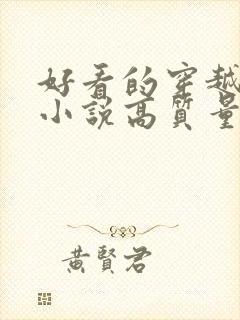 好看的穿越
小説高質量
黃賢君